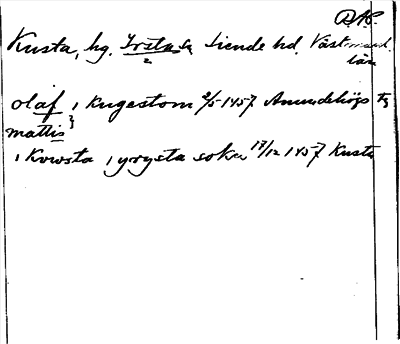 D.A.
Kusta, hg. Irsta sn Siende hd. Västmanl.
län
olaf i Kugestom 2/5 1457 Anundshögs tg
mattis
i Kowsta i yrysta soken 17/12 1457 Kusta